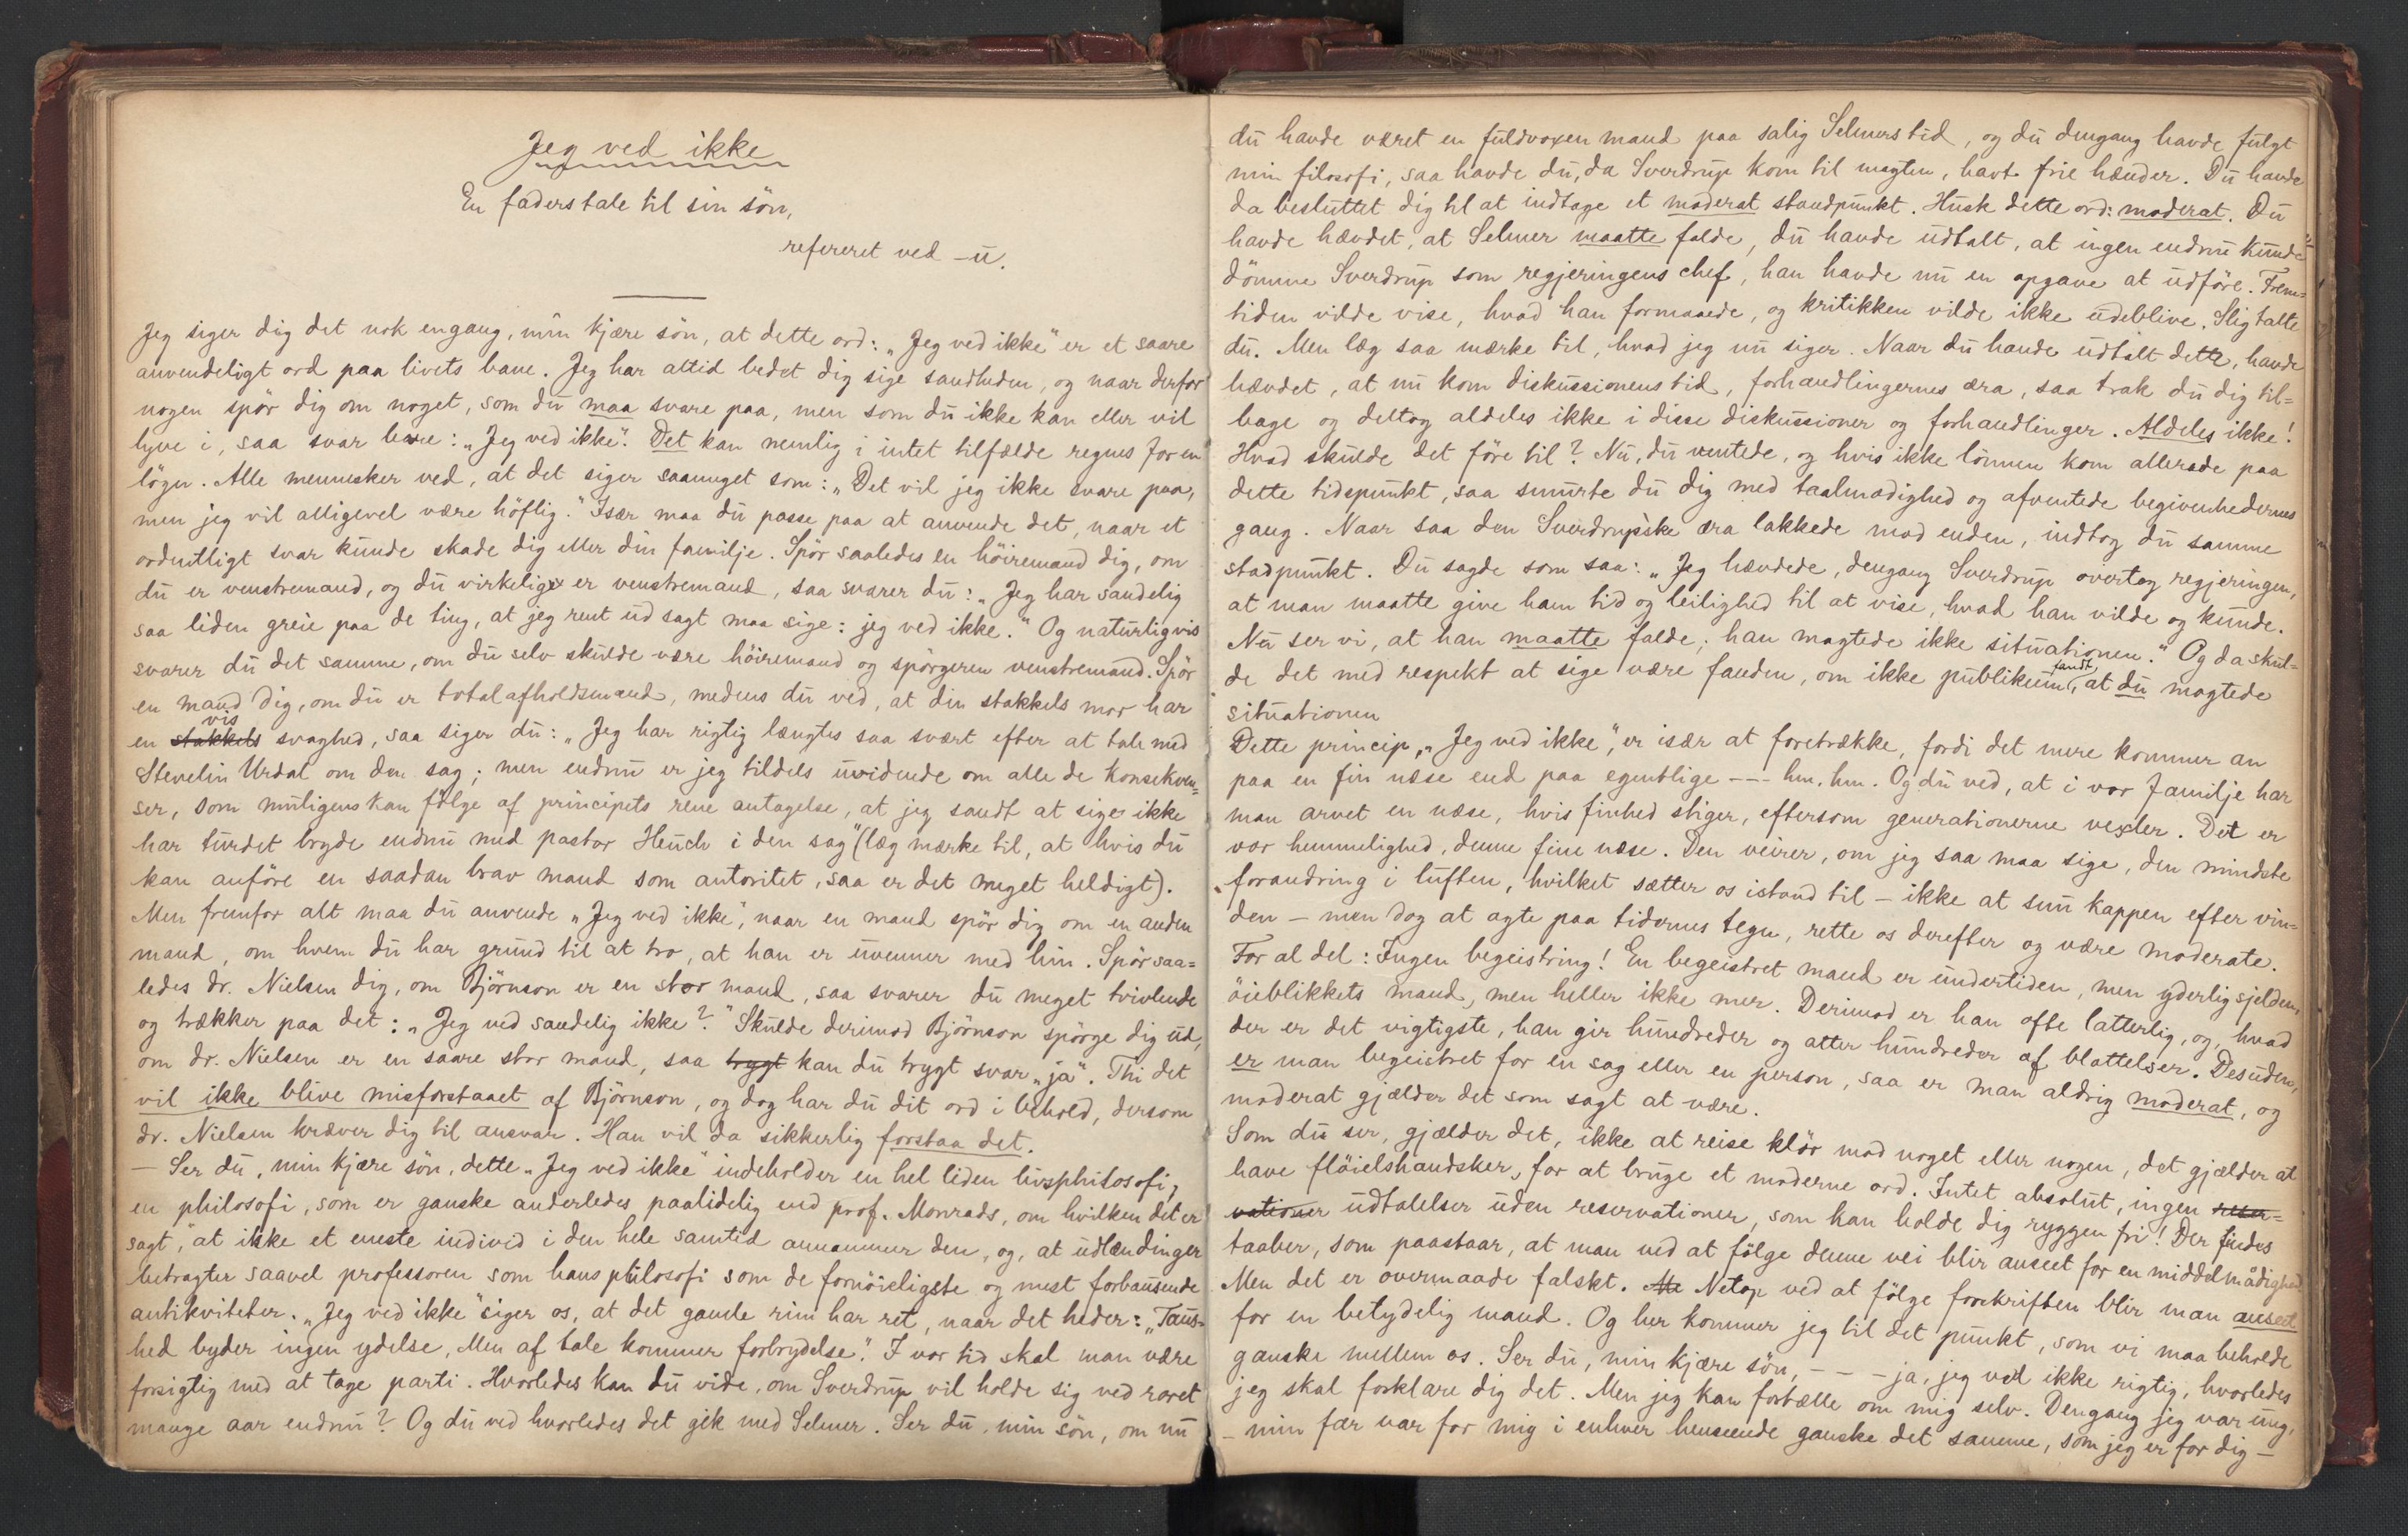 Jeg ved ikke
En faderstale til sin søn,
refereret ved -u.
Jeg siger dig det nok engang, min kjære søn, at dette ord: „Jeg ved ikke“ er et saare
anvendeligt ord paa livets bane. Jeg har altid bedet dig sige sandheden, og naar derfor
nogen spør dig om noget, som du maa svare paa, men som du ikke kan eller vil
lyve i, saa svar bare: „Jeg ved ikke“. Det kan nemlig i intet tilfælde regnes for en
løgn. Alle mennesker ved, at det siger saameget som: „Det vil jeg ikke svare paa,
men jeg vil alligevel være høflig.“ Især maa du passe paa at anvende det, naar et
ordentligt svar kunde skade dig eller din familje. Spør saaledes en høiremand dig, om
du er venstremand, og du virkelig er venstremand, saa svarer du: „Jeg har sandelig
saa liden greie paa de ting, at jeg rent ud sagt maa sige: jeg ved ikke.“ Og naturligvis
svarer du det samme, om du selv skulde være høiremand og spørgeren venstremand. Spør
en mand dig, om du er totalafholdsmand, medens du ved, at din stakkels mor har
en stakkels vis svaghed, saa siger du: „Jeg har rigtig længtes saa svært efter at tale med
Stevelin Urdal om den sag; men endnu er jeg tildels uvidende om alle de konsekven=
ser, som muligens kan følge af principets rene antagelse, at jeg sandt at sige ikke
har turdet bryde endnu med pastor Heuch i den sag“ (læg mærke til, at hvis du
kan anføre en saadan brav mand som autoritet, saa er det meget heldigt).
Men fremfor alt maa du anvende „Jeg ved ikke“, naar en mand spør dig om en anden
mand, om hvem du har grund til at tro, at han er uvenner med him. Spør saa=
ledes dr. Nielsen dig, om Bjørnson er en stor mand, saa svarer du meget tvivlende
og trækker paa det: „Jeg ved sandelig ikke?“ Skulde derimod Bjørnson spørge dig ud,
om dr. Nielsen er en saare stor mand, saa trygt kan du trygt svar „ja“. Thi det
vil ikke blive misforstaaet af Bjørnson, og dog har du dit ord i behold, dersom
dr. Nielsen kræver dig til ansvar. Han vil da sikkerlig forstaa det.
— Ser du, min kjære søn, dette „Jeg ved ikke“ indeholder en hel liden livsphilosofi,
en philosofi, som er ganske anderledes paalidelig end prof. Monrads, om hvilken det er
sagt, „at ikke et eneste individ i den hele samtid annammer den, og, at udlændinger
betragter saavel professoren som hans philosofi som de fornøieligste og mest forbausende
antikviteter. „Jeg ved ikke“ siger os, at det gamle rim har ret, naar det heder: „Taus-
hed byder ingen ydelse, Men af tale kommer forbrydelse“. I vor tid skal man være
forsigtig med at tage parti. Hvorledes kan du vide, om Sverdrup vil holde sig ved roret
mange aar endnu? Og du ved hvorledes det gik med Selmer. Ser du, min søn, om nu
du havde været en fuldvoxen mand paa salig Selmers tid, og du dengang havde fulgt
min filosofi, saa havde du, da Sverdrup kom til magten, havt frie hænder. Du havde
da besluttet dig til at indtage et moderat standpunkt. Husk dette ord: moderat. Du
havde hævdet, at Selmer maatte falde, du havde udtalt, at ingen endnu kunde
dømme Sverdrup som regjeringens chef, han havde nu en opgave at udføre. Frem=
tiden vilde vise, hvad han formaaede, og kritikken vilde ikke udeblive. Slig talte
du. Men læg saa mærke til, hvad jeg nu siger. Naar du havde udtalt dette, havde
hævdet, at nu kom diskussionens tid, forhandlingernes æra, saa trak du dig til=
bage og deltog aldeles ikke i disse diskussioner og forhandlinger. Aldeles ikke!
Hvad skulde det føre til? Nu, du ventede, og hvis ikke lønnen kom allerede paa
dette tidspunkt, saa smurte du dig med taalmodighed og afventede begivenhedernes
gang. Naar saa den Sverdrupske æra lakkede mod enden, indtog du samme
stadpunkt. Du sagde som saa: „Jeg hævdede, dengang Sverdrup overtog regjeringen,
at man maatte give ham tid og leilighed til at vise, hvad han vilde og kunde.
Nu ser vi, at han maatte falde; han magtede ikke situationen.“ Og da skul=
de det med respekt at sige være fanden, om ikke publikum fandt, at du magtede
situationen
Dette princip, „Jeg ved ikke“, er især at foretrække, fordi det mere kommer an
paa en fin næse end paa egentlige --- hm, hm. Og du ved, at i vor familje har
man arvet en næse, hvis finhed stiger, eftersom generationerne vexler. Det er
vor hemmelighed, denne fine næse. Den veirer, om jeg saa maa sige, den mindste
forandring i luften, hvilket sætter os istand til — ikke at snu kappen efter vin=
den — men dog at agte paa tidernes tegn, rette os derefter og være moderate.
For al del: Ingen begeistring! En begeistret mand er undertiden, men yderlig sjelden,
øieblikkets mand, men heller ikke mer. Derimod er han ofte latterlig, og, hvad
der er det vigtigste, han gir hundreder og atter hundreder af blottelser. Desuden,
er man begeistret for en sag eller en person, saa er man aldrig moderat, og
moderat gjælder det som sagt at være.
Som du ser, gjælder det, ikke at reise klør mod noget eller nogen, det gjælder at
have fløielshandsker, for at bruge et moderne ord. Intet absolut, ingen reser=
vationer udtalelser uden reservationer, som kan holde dig ryggen fri! Der findes
taaber, som paastaar, at man ved at følge denne vei blir anseet for en middelmådighed
Men det er overmaade falskt. Me Netop ved at følge forskriften blir man anseet
for en betydelig mand. Og her kommer jeg til det punkt, som vi maa beholde
ganske mellem os. Ser du, min kjære søn, — — — ja, jeg ved ikke rigtig, hvorledes
jeg skal forklare dig det. Men jeg kan fortælle om mig selv. Dengang jeg var ung,
— min far var for mig i enhver henseende ganske det samme, som jeg er for dig —